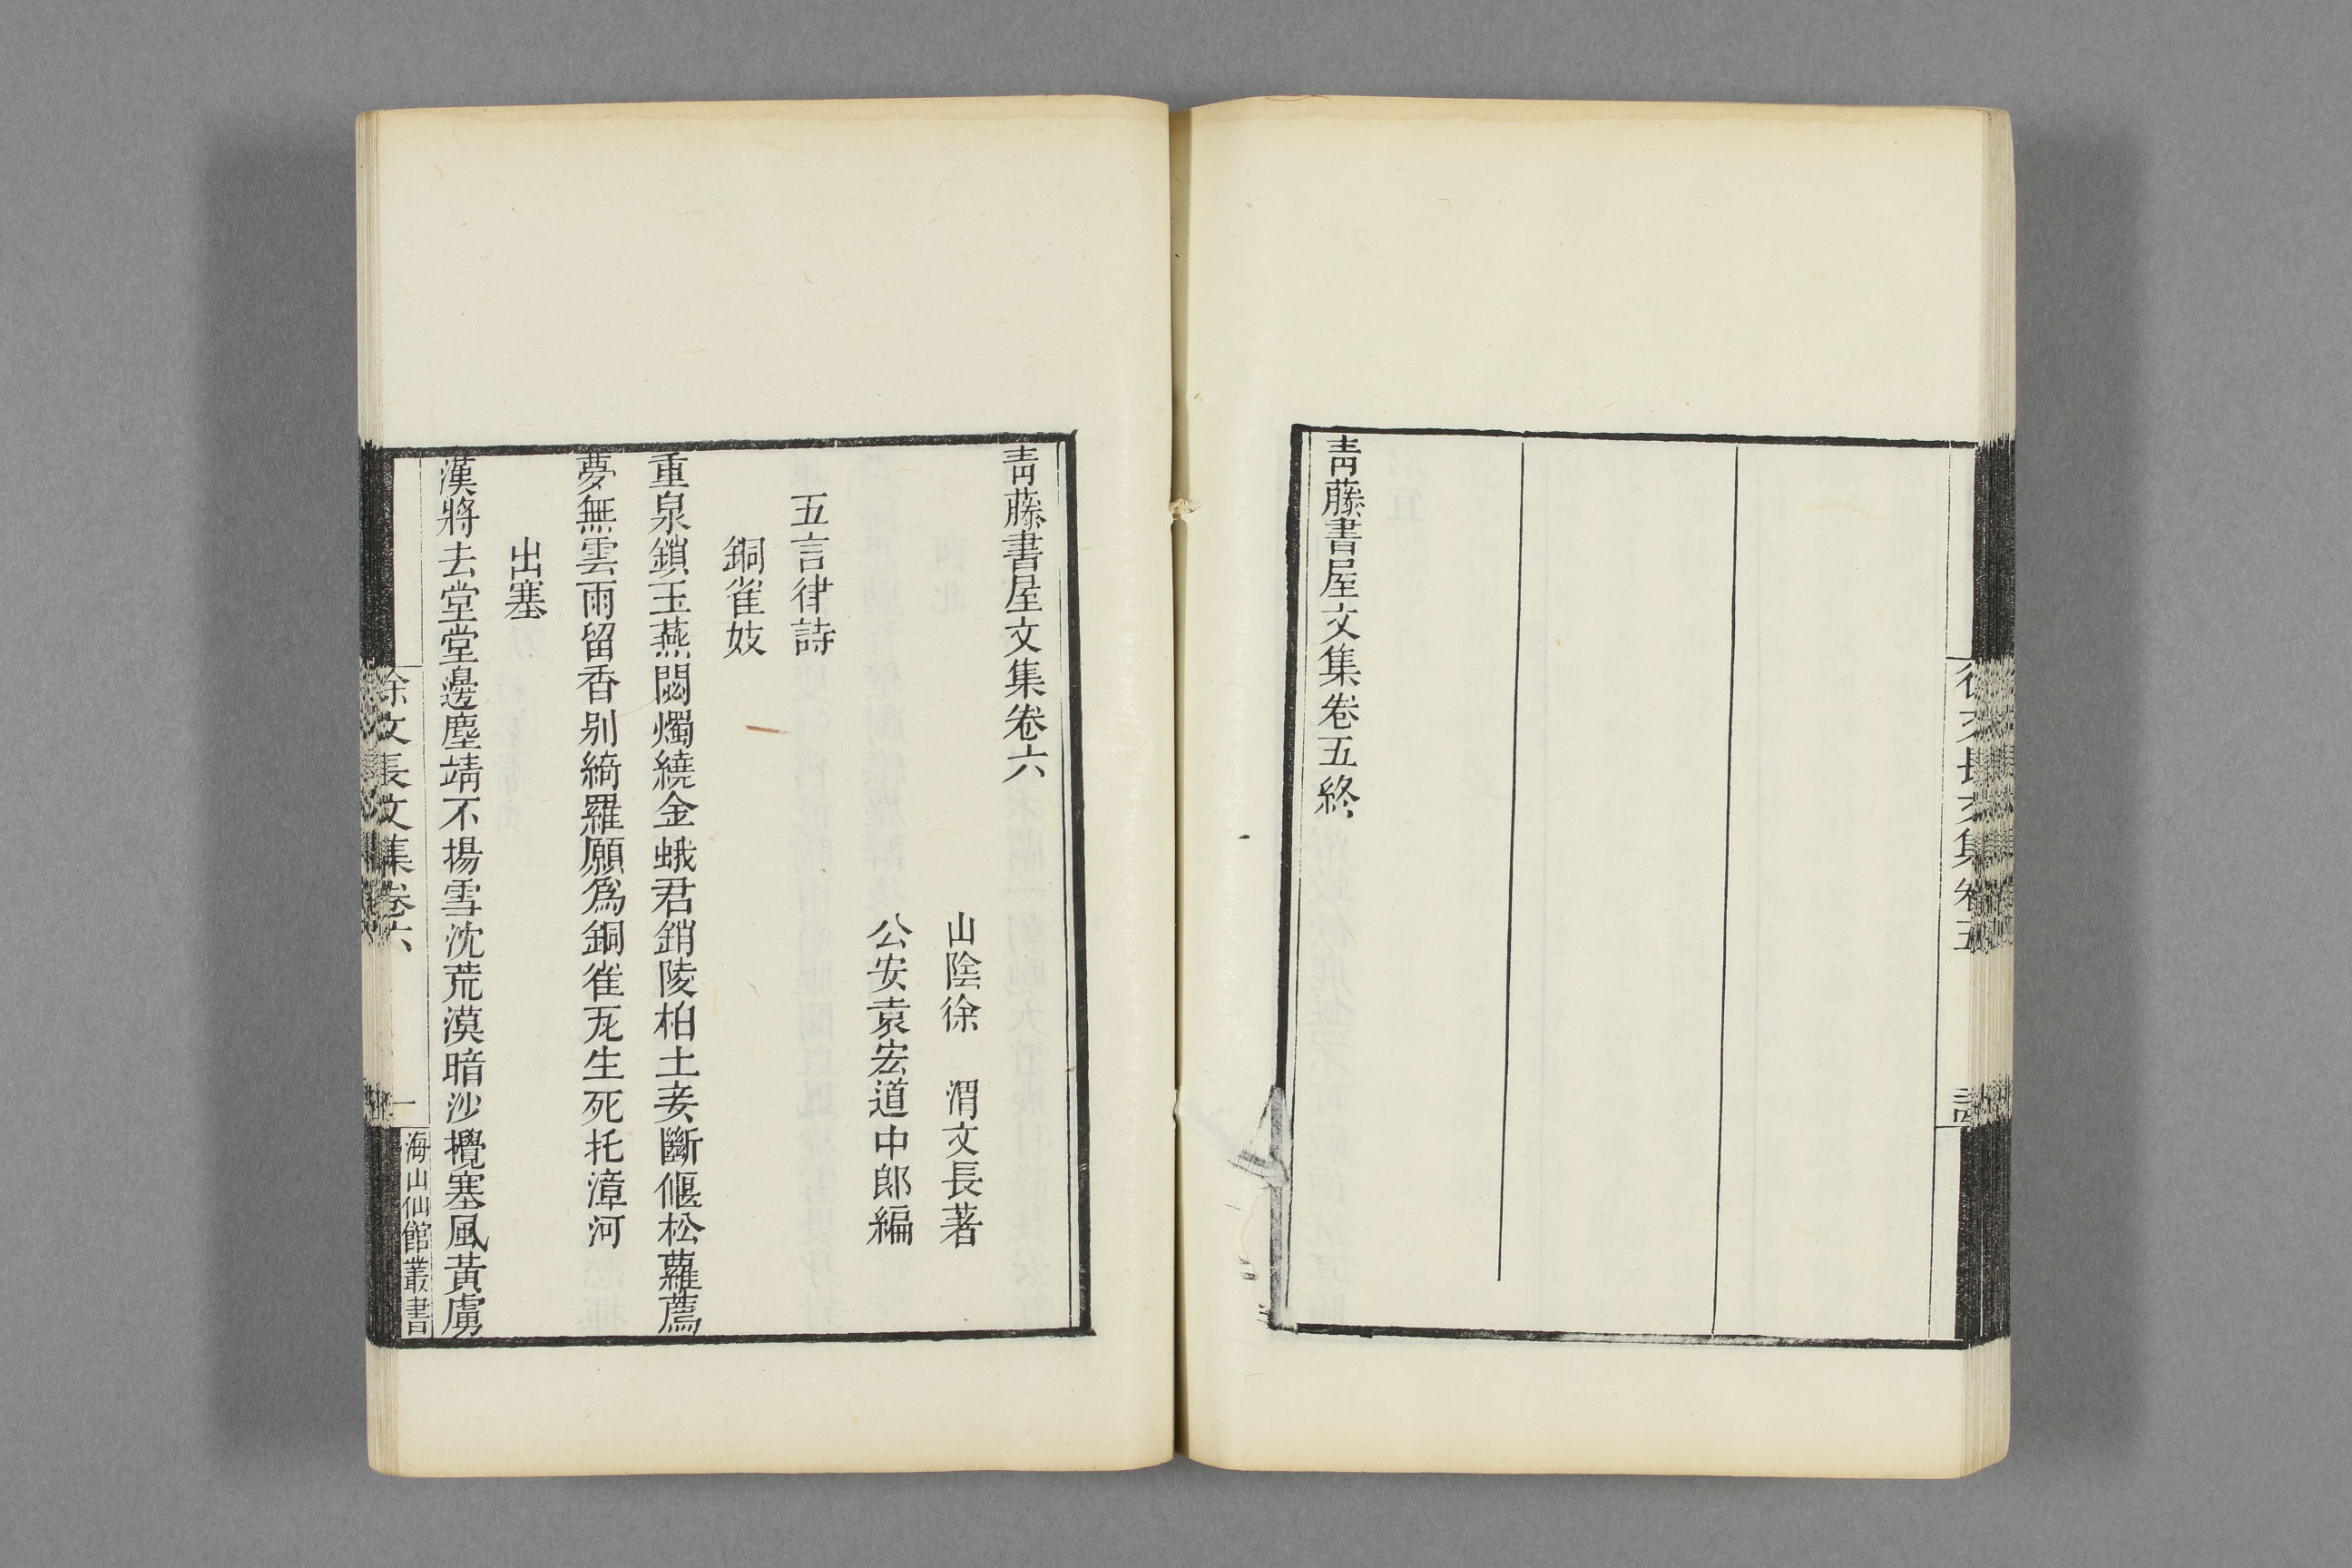 青藤書屋文集卷五終
青藤書屋文集卷六
山陰徐　渭文長著
公安袁宏道中郎編
五言律詩
銅雀妓
重泉鎖玉燕閟燭繞金蛾君銷陵柏土妾斷偃松蘿薦
夢無雲雨留香別綺羅願爲銅雀瓦生死托漳河
出塞
漢將去堂堂邊塵靖不揚雪沈荒漠暗沙攪塞風黃虜
徐文長文集卷六
一
海山仙館叢書